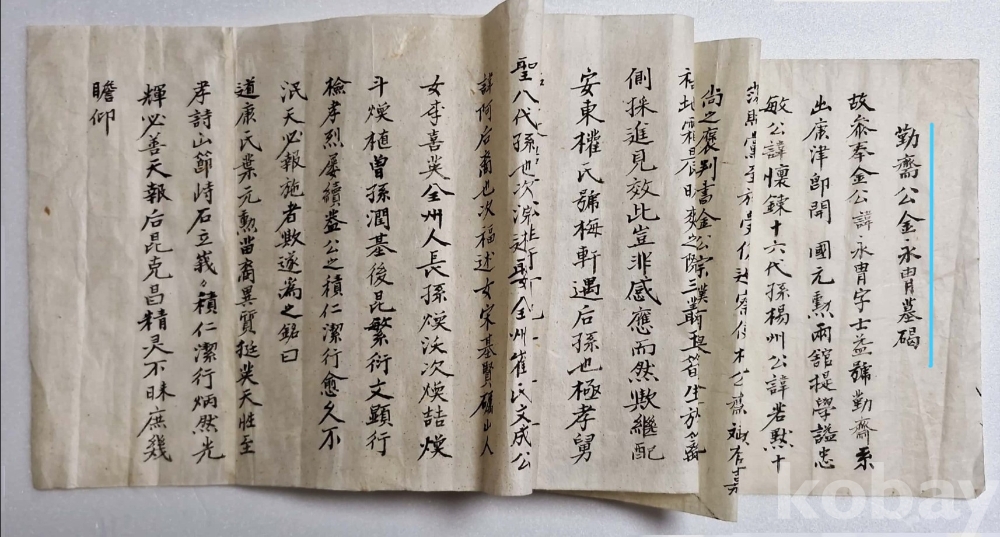 勤齋公金永胄墓碣
故叅奉金公諱永胄字士益號勤齋系
出康津即開 國元勲兩舘提學謚忠
敏公諱懷鍊十六代孫楊州公諱若默十
尚之褒判書金公
側採進見效此豈非感應而然歟繼配
安東權氏號梅軒遇后孫也極孝舅
聖八代孫也次 娶全州崔氏文成公
諱阿后裔也次福述女宋基賢礪山人
女李喜英全州人長孫煐沃次煐喆煐
斗煐植曾孫潤基後昆繁衍文顯行
檢孝烈屡續盖公之積仁潔行愈久不
泯天必報施者歟遂為之銘曰
道康氏葉元勲苗裔異質挺英天性至
孝詩山節峙石立莪〻積仁潔行炳然先
輝必善天報后昆克昌精灵不昧庶幾
瞻仰
kobay